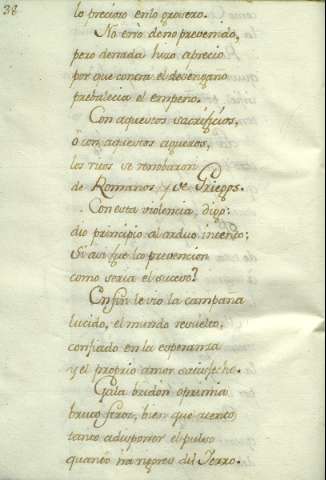 38
lo precioso en lo grosero.
No erró de no prevenido,
pero de nada hizo aprecio
por que contra el desengaño
prebalecia el empeño.
Con aquestos sacrificios,
ò con aquestos agueros,
los ritos se
de Romanos, y de Griegos.
Con esta violencia, digo:
dio principio al arduo intento;
Si asi fuè la prevencion
como seria el suceso?
En fin le vio la campaña
lucido, el mundo resuelto,
confiado en la esperanza
y el proprio amor satisfecho.
Galan bridon oprimia
bruto feroz, bien que atento
tanto al disponer el pulso
quanto